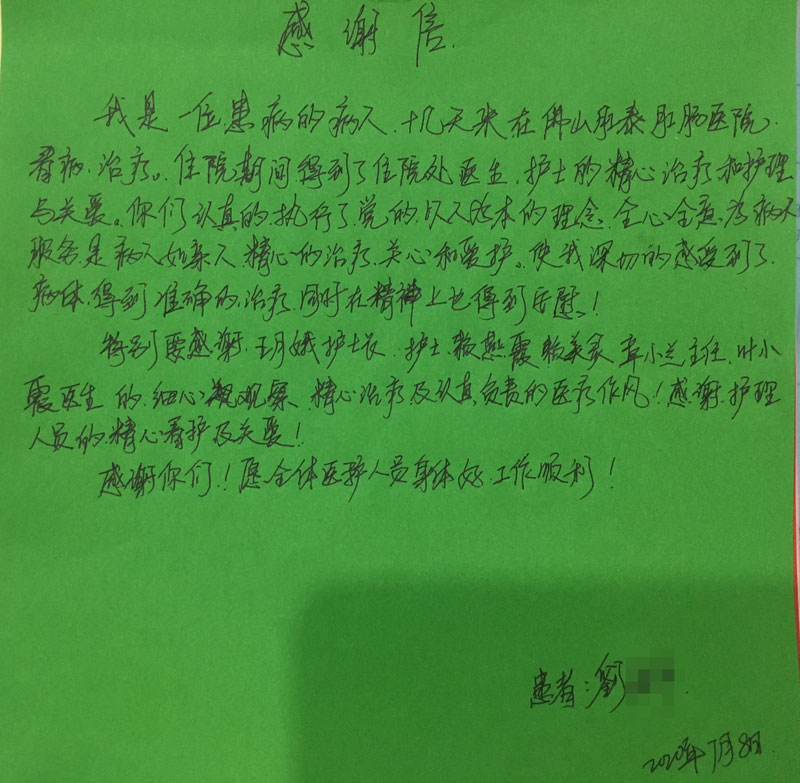 感谢信.
我是一位患病的病人、十几天来在佛山承泰肛肠医院、
看病、治疗。住院期间得到了住院处医生、护士的精心治疗和护理
与关爱。你们认真的执行了党的、以人为本的理念、全心全意、为病人
服务、是病人如亲人、精心的治疗、关心和爱护。使我深切的感受到了、
病体、得到准确的治疗、同时在精神上也得到安慰！
特别要感谢、王月娥护士长、护士、赖燕霞 赖美家 小兰主任、叶小
霞医生的、细心观察、精心治疗及认真负责的医疗作风！感谢护理
人员的、精心看护及关爱！
感谢你们！愿全体医护人员身体好、工作顺利！
患者：劉
2020年7月8日.